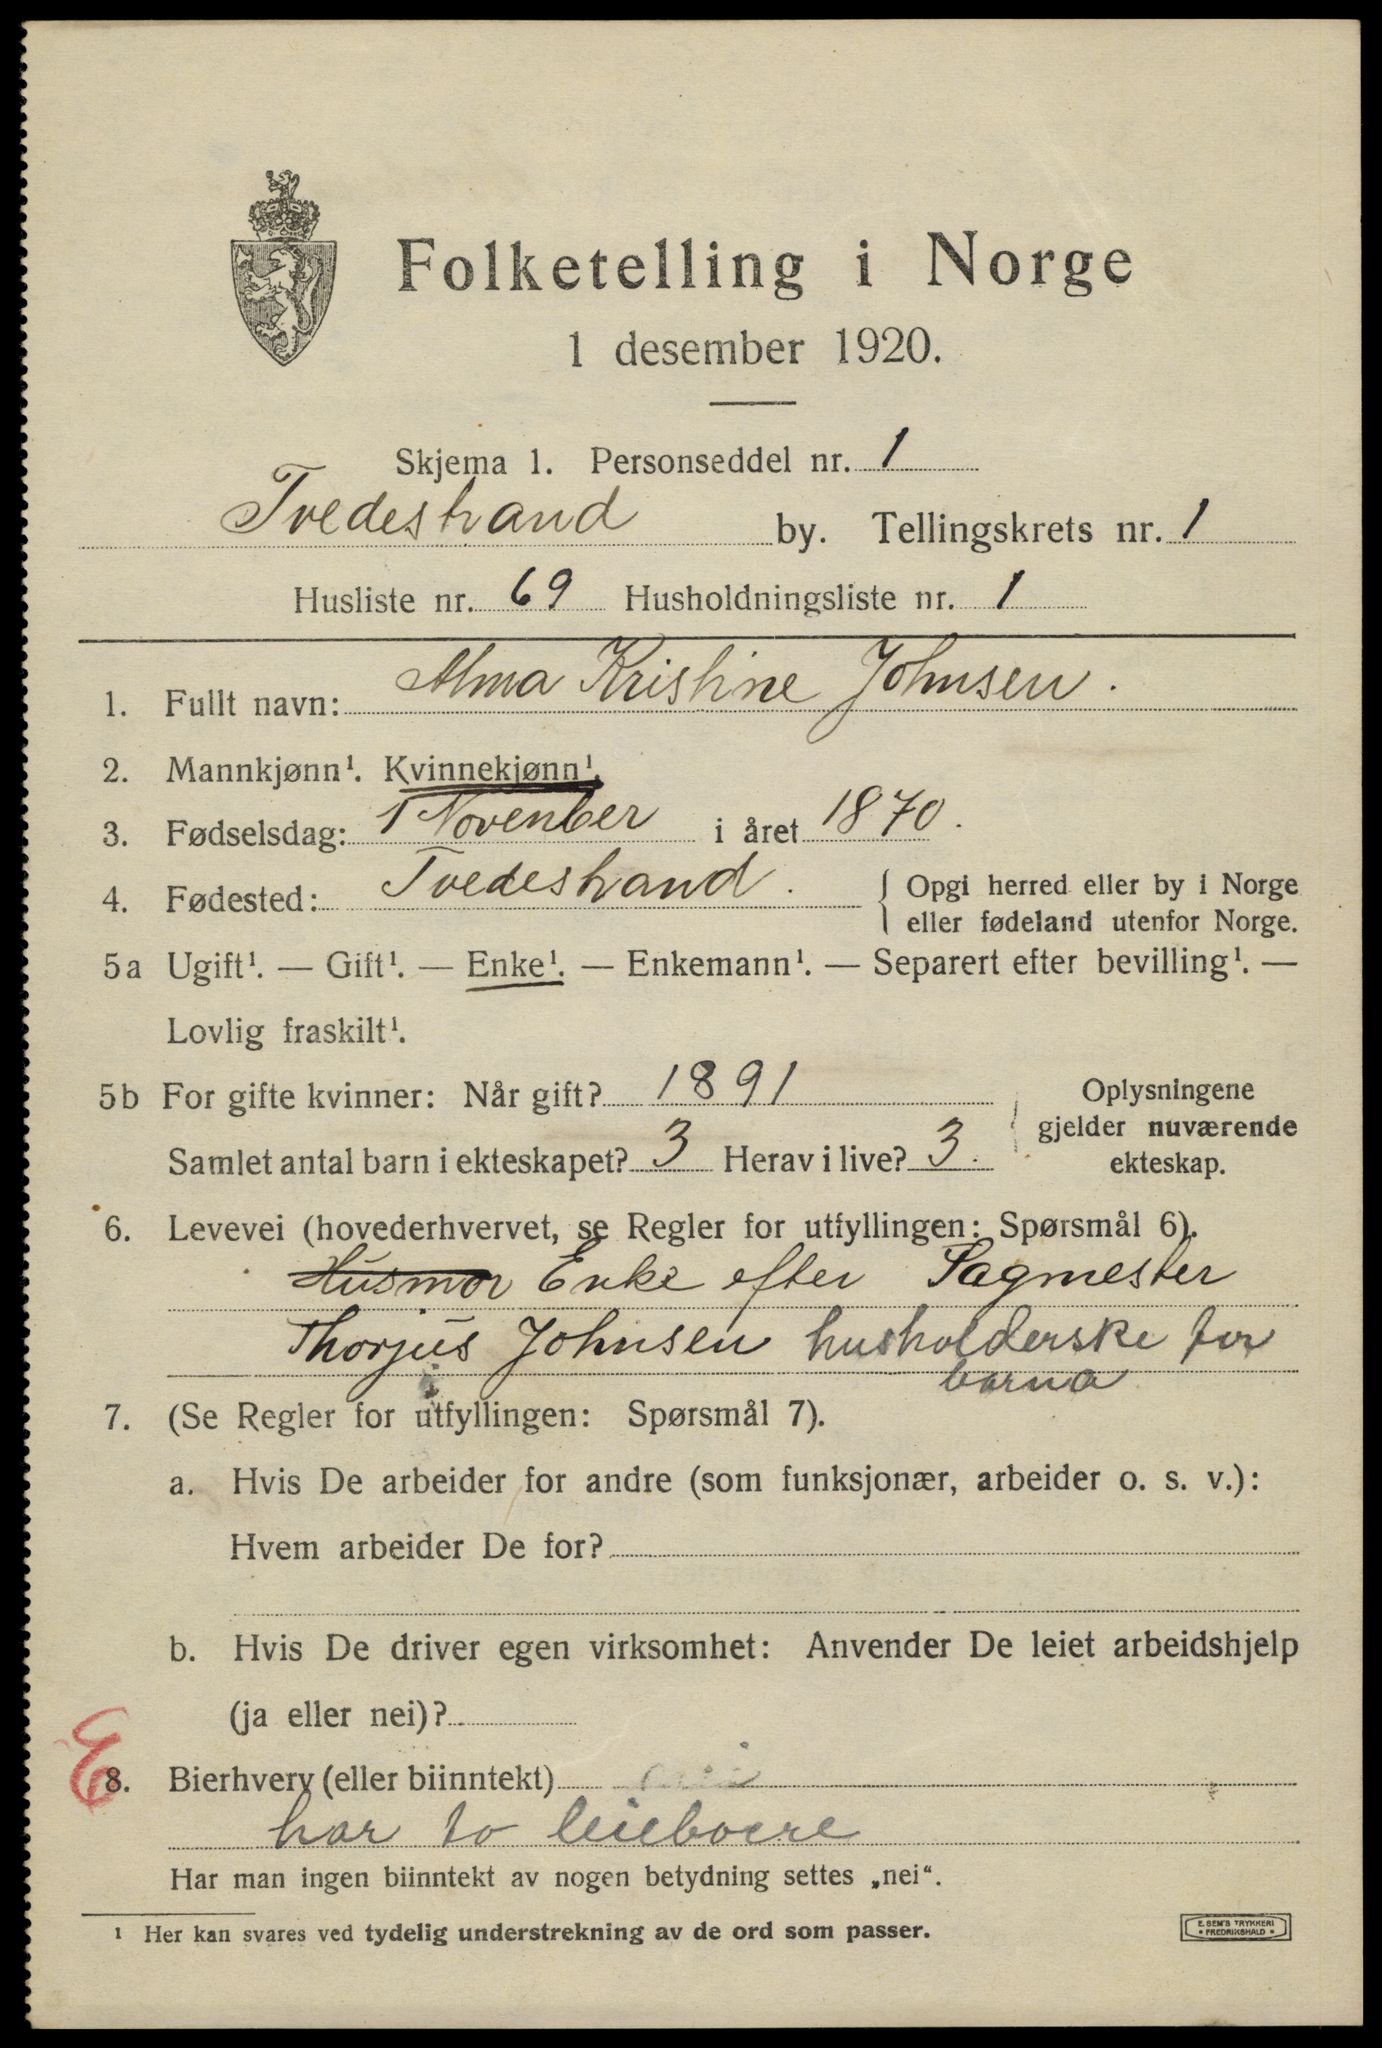 Folketelling i Norge
1 desember 1920.
Skjema 1. Personseddel nr. 1
Tvedestrand by. Tellingskrets nr. 1
Husliste nr. 69 Husholdningsliste nr. 1
1. Fullt navn: Alma Kristine Johnsen.
2. Mannkjønn¹. Kvinnekjønn¹.
3. Fødselsdag: 1 November i året 1870.
4. Fødested: Tvedestrand. { Opgi herred eller by i Norge
eller fødeland utenfor Norge.
5a Ugift¹. — Gift¹. — Enke¹. — Enkemann¹. — Separert efter bevilling¹. —
Lovlig fraskilt¹.
5b For gifte kvinner: Når gift? 1891
Samlet antal barn i ekteskapet? 3 Herav i live? 3.
Oplysningene
gjelder nuværende
ekteskap.
6. Levevei (hovederhvervet, se Regler for utfyllingen: Spørsmål 6).
Husmor Enke efter Sagmester
Thorjus Johnsen husholderske for
barna
7. (Se Regler for utfyllingen: Spørsmål 7).
a. Hvis De arbeider for andre (som funksjonær, arbeider o. s. v.):
Hvem arbeider De for?
b. Hvis De driver egen virksomhet: Anvender De leiet arbeidshjelp
(ja eller nei)?
E
8. Bierhverv (eller biinntekt) nei
har to leieboere
Har man ingen biinntekt av nogen betydning settes „nei“.
¹ Her kan svares ved tydelig understrekning av de ord som passer.
E. SEM'S TRYKKERI
• FREDRIKSHALD •